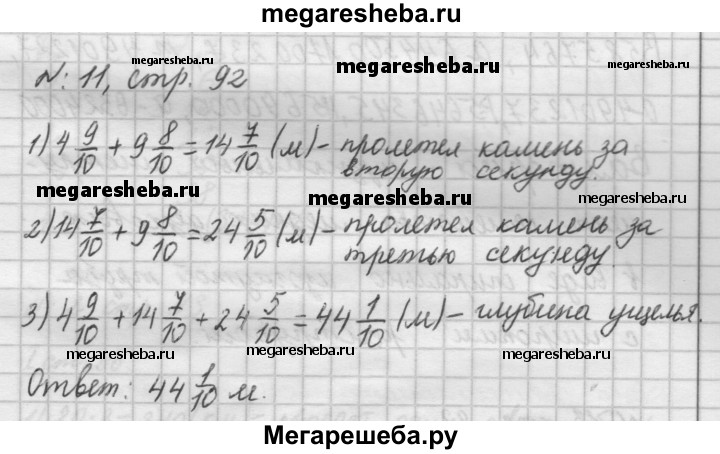 megaresheba.ru
№ 11, стр. 92 megaresheba.ru megaresheba.ru megaresheba.ru
1) 4 9/10 + 9 8/10 = 14 7/10 (м) - пролетел камень за
вторую секунду.
megaresheba.ru megaresheba.ru megaresheba.ru
2) 14 7/10 + 9 8/10 = 24 5/10 (м) - пролетел камень за
третью секунду
3) 4 9/10 + 14 7/10 + 24 5/10 = 44 1/10 (м) - глубина ущелья.
megaresheba.ru megaresheba.ru megaresheba.ru
Ответ: 44 1/10 м.
Мегарешеба.ру